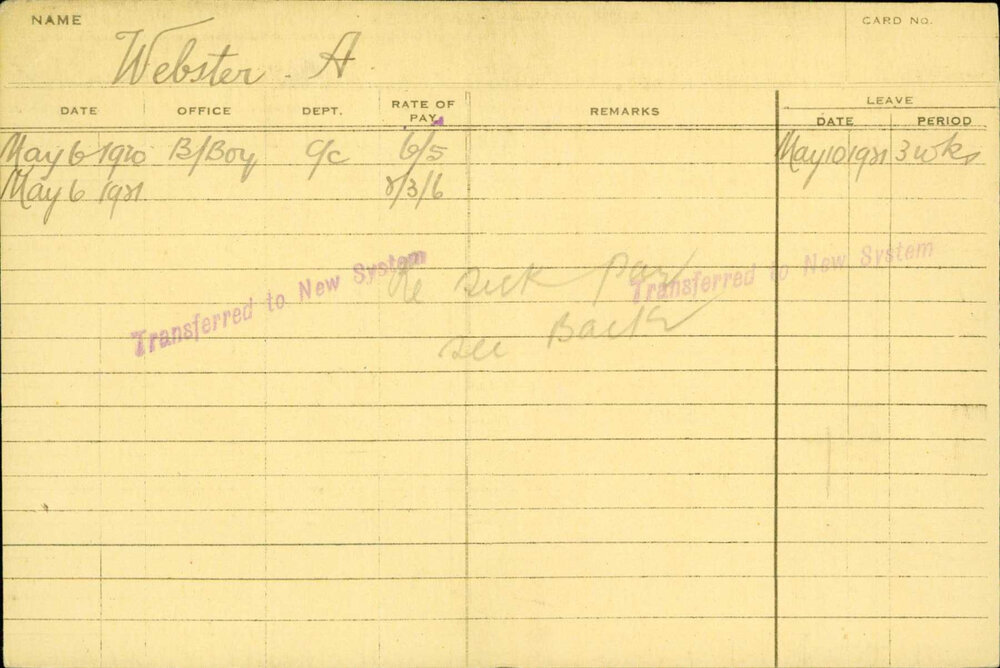 NAME
CARD NO.
Webster . A
DATE OFFICE DEPT. RATE OF PAY REMARKS LEAVE
DATE PERIOD
May 6 1920 B/Boy 6/5 May 10 1921 3 wks
May 6 1921 /3/6
Transferred to New System
Re Sick Pay
Transferred to New System
see Back